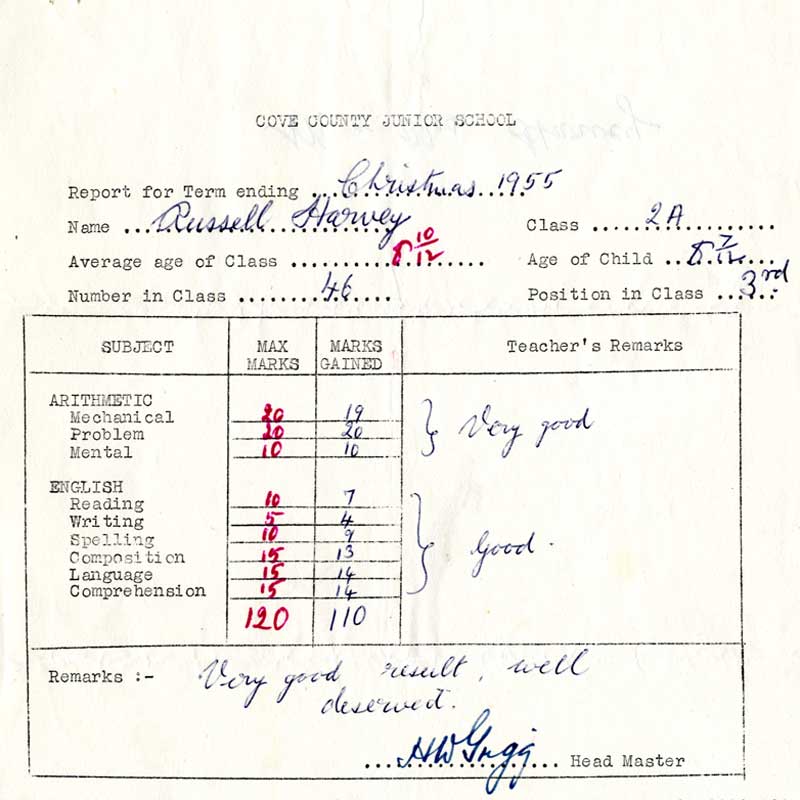 COVE COUNTY JUNIOR SCHOOL
Report for Term ending ... Christmas 1955
Name ... Russell Harvey Class ... 2A
Average age of Class ... 8 10/12 Age of Child ... 8 7/12
Number in Class ... 46 Position in Class ... 3rd
SUBJECT MAX MARKS MARKS GAINED Teacher's Remarks
ARITHMETIC
Mechanical 20 19
Problem 20 20 Very good
Mental 10 10
ENGLISH
Reading 10 7
Writing 5 4
Spelling 10 9
Composition 15 13 Good.
Language 15 14
Comprehension 15 14
120 110
Remarks :- Very good result, well
deserved.
HW Grigg Head Master